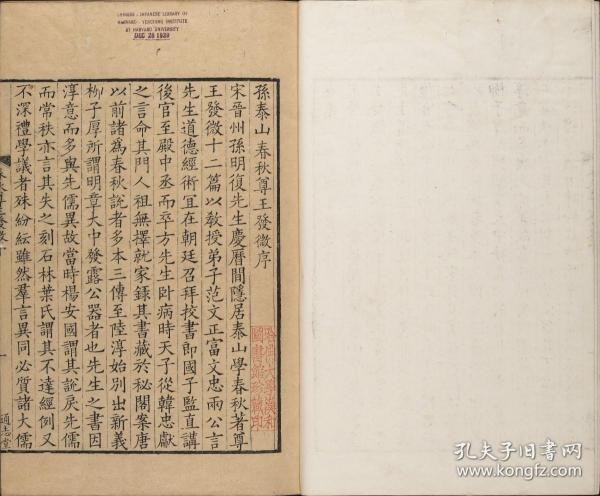 CHINESE-JAPANESE LIBRARY OF
HARVARD-YENCHING INSTITUTE
AT HARVARD UNIVERSITY
DEC 28 1939
孫泰山春秋尊王發微序
宋晉州孫明復先生慶曆間隱居泰山學春秋著尊
王發微十二篇以教授弟子范文正富文忠兩公言
先生道德經術宜在朝廷召拜校書即國子監直講
後官至殿中丞而卒方先生卧病時天子從韓忠獻
之言命其門人祖無擇就家錄其書藏於秘閣案唐
以前諸為春秋說者多本三傳至陸淳始別出新義
栁子厚所謂明章大中發露公器者也先生之書因
淳意而多與先儒異故當時楊安國謂其說戾先儒
而常秩亦言其失之刻石林葉氏謂其不達經例又
不深禮學議者殊紛紜雖然羣言異同必質諸大儒
通志堂
孔夫子旧书网
kongfz.com